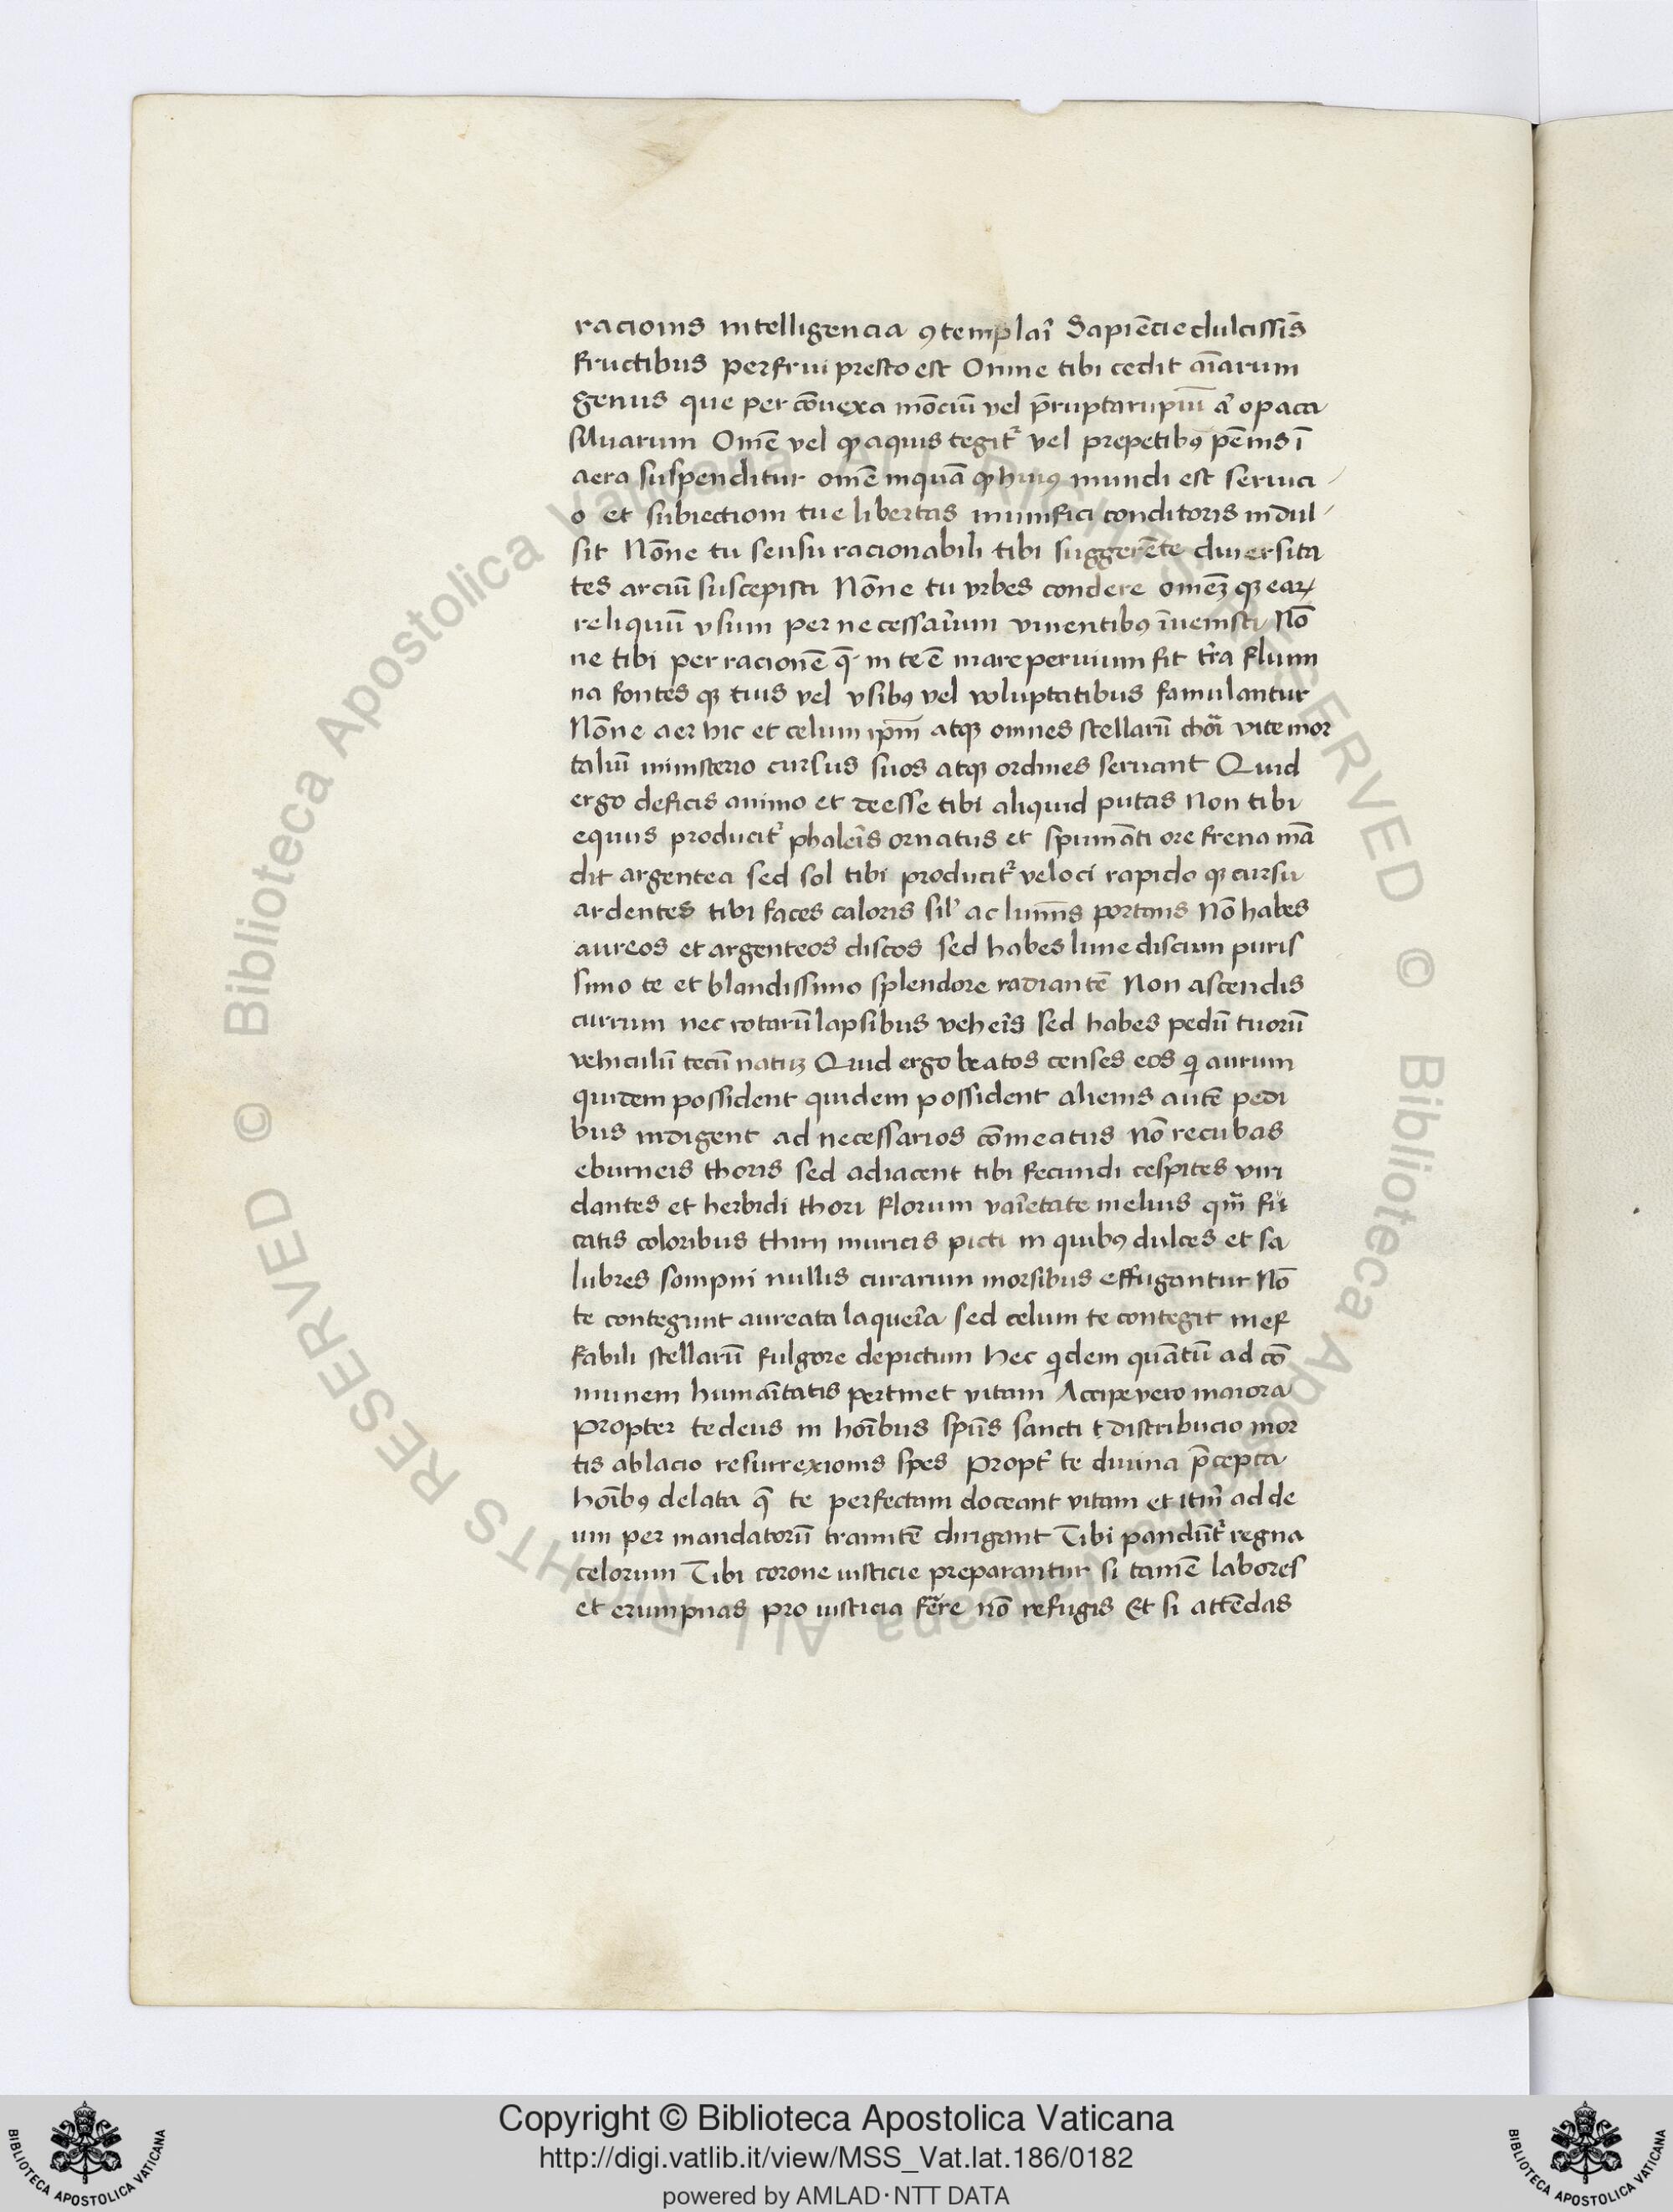 racionis intelligencia ꝯtemplaī Sapiēcie dulcissīs
fructibus perfrui presto est Omne tibi cedit aīarum
genus que per cōuexa mōciū vel p̄ruptarupiū aꝉ opaca
siluarum Omē vel qd aquis tegitᷣ vel prepetibꝰ pēnis ī
aera suspenditur omē inquā qd huiꝰ mundi est seruici
o et subiectioni tue libertas munifici conditoris indul
sit Nōne tu sensu racionabili tibi suggerēte diuersita
tes arciū suscepisti Nōne tu vrbes condere omēqꝫ earꝝ
reliquū vsum per necessarium viuentibꝰ īuenisti Nō
ne tibi per racionē q̄ in te ē mare peruium fit tr̄ra flumi
na fontesqꝫ tuis vel vsibꝰ vel voluptatibus famulantur
Nōne aer hic et celum ipm̄ atqꝫ omnes stellarū chori vite mor
taliū ministerio cursus suos atqꝫ ordines seruant Quid
ergo deficis animo et deesse tibi aliquid putas Non tibi
equus producitᷣ phaleris ornatus et spumāti ore frena mā
dit argentea sed sol tibi producitᷣ veloci rapidoqꝫ cursu
ardentes tibi faces caloris silᷣ ac lumīs portans Nō habes
aureos et argenteos discos sed habes lune discum puris
simo te et blandissimo splendore radiantē Non ascendis
currum nec rotarū lapsibus veheris sed habes pedū tuorū
vehiculū tecū natuꝫ Quid ergo beatos censes eos qi aurum
quidem possident quidem possident alienis autē pedi
bus indigent ad necessarios cōmeatus Nō recubas
eburneis thoris sed adiacent tibi fecundi cespites viri
dantes et herbidi thori florum varietate melius qm̄ fu
catis coloribus thirij muricis picti in quibꝰ dulces et sa
lubres sompni nullis curarum morsibus effugantur Nō
te contegunt aureata laqueria sed celum te contegit inef
fabili stellarū fulgore depictum Hec qidem quātū ad cō
munem humaītatis pertinet vitam Accipe vero maiora
Propter te deus in hoībus spūs sancti t distribucio mor
tis ablacio resurrexionis spes Proptᷣ te diuina p̄cepta
hoībꝰ delata q̄ te perfectam doceant vitam et itin̄ ad de
um per mandatorū tramitē dirigant Tibi pandūtᷣ regna
celorum Tibi corone iusticie preparantur si tamē labores
et erumpnas pro iusticia ferre nō refugis Et si attēdas
Copyright © Biblioteca Apostolica Vaticana
http://digi.vatlib.it/view/MSS_Vat.lat.186/0182
powered by AMLAD·NTT DATA
BIBLIOTECA APOSTOLICA VATICANA
BIBLIOTECA APOSTOLICA VATICANA
© Biblioteca Apostolica Vaticana ALL RIGHTS RESERVED © Biblioteca Apostolica Vaticana ALL RIGHTS RESERVED